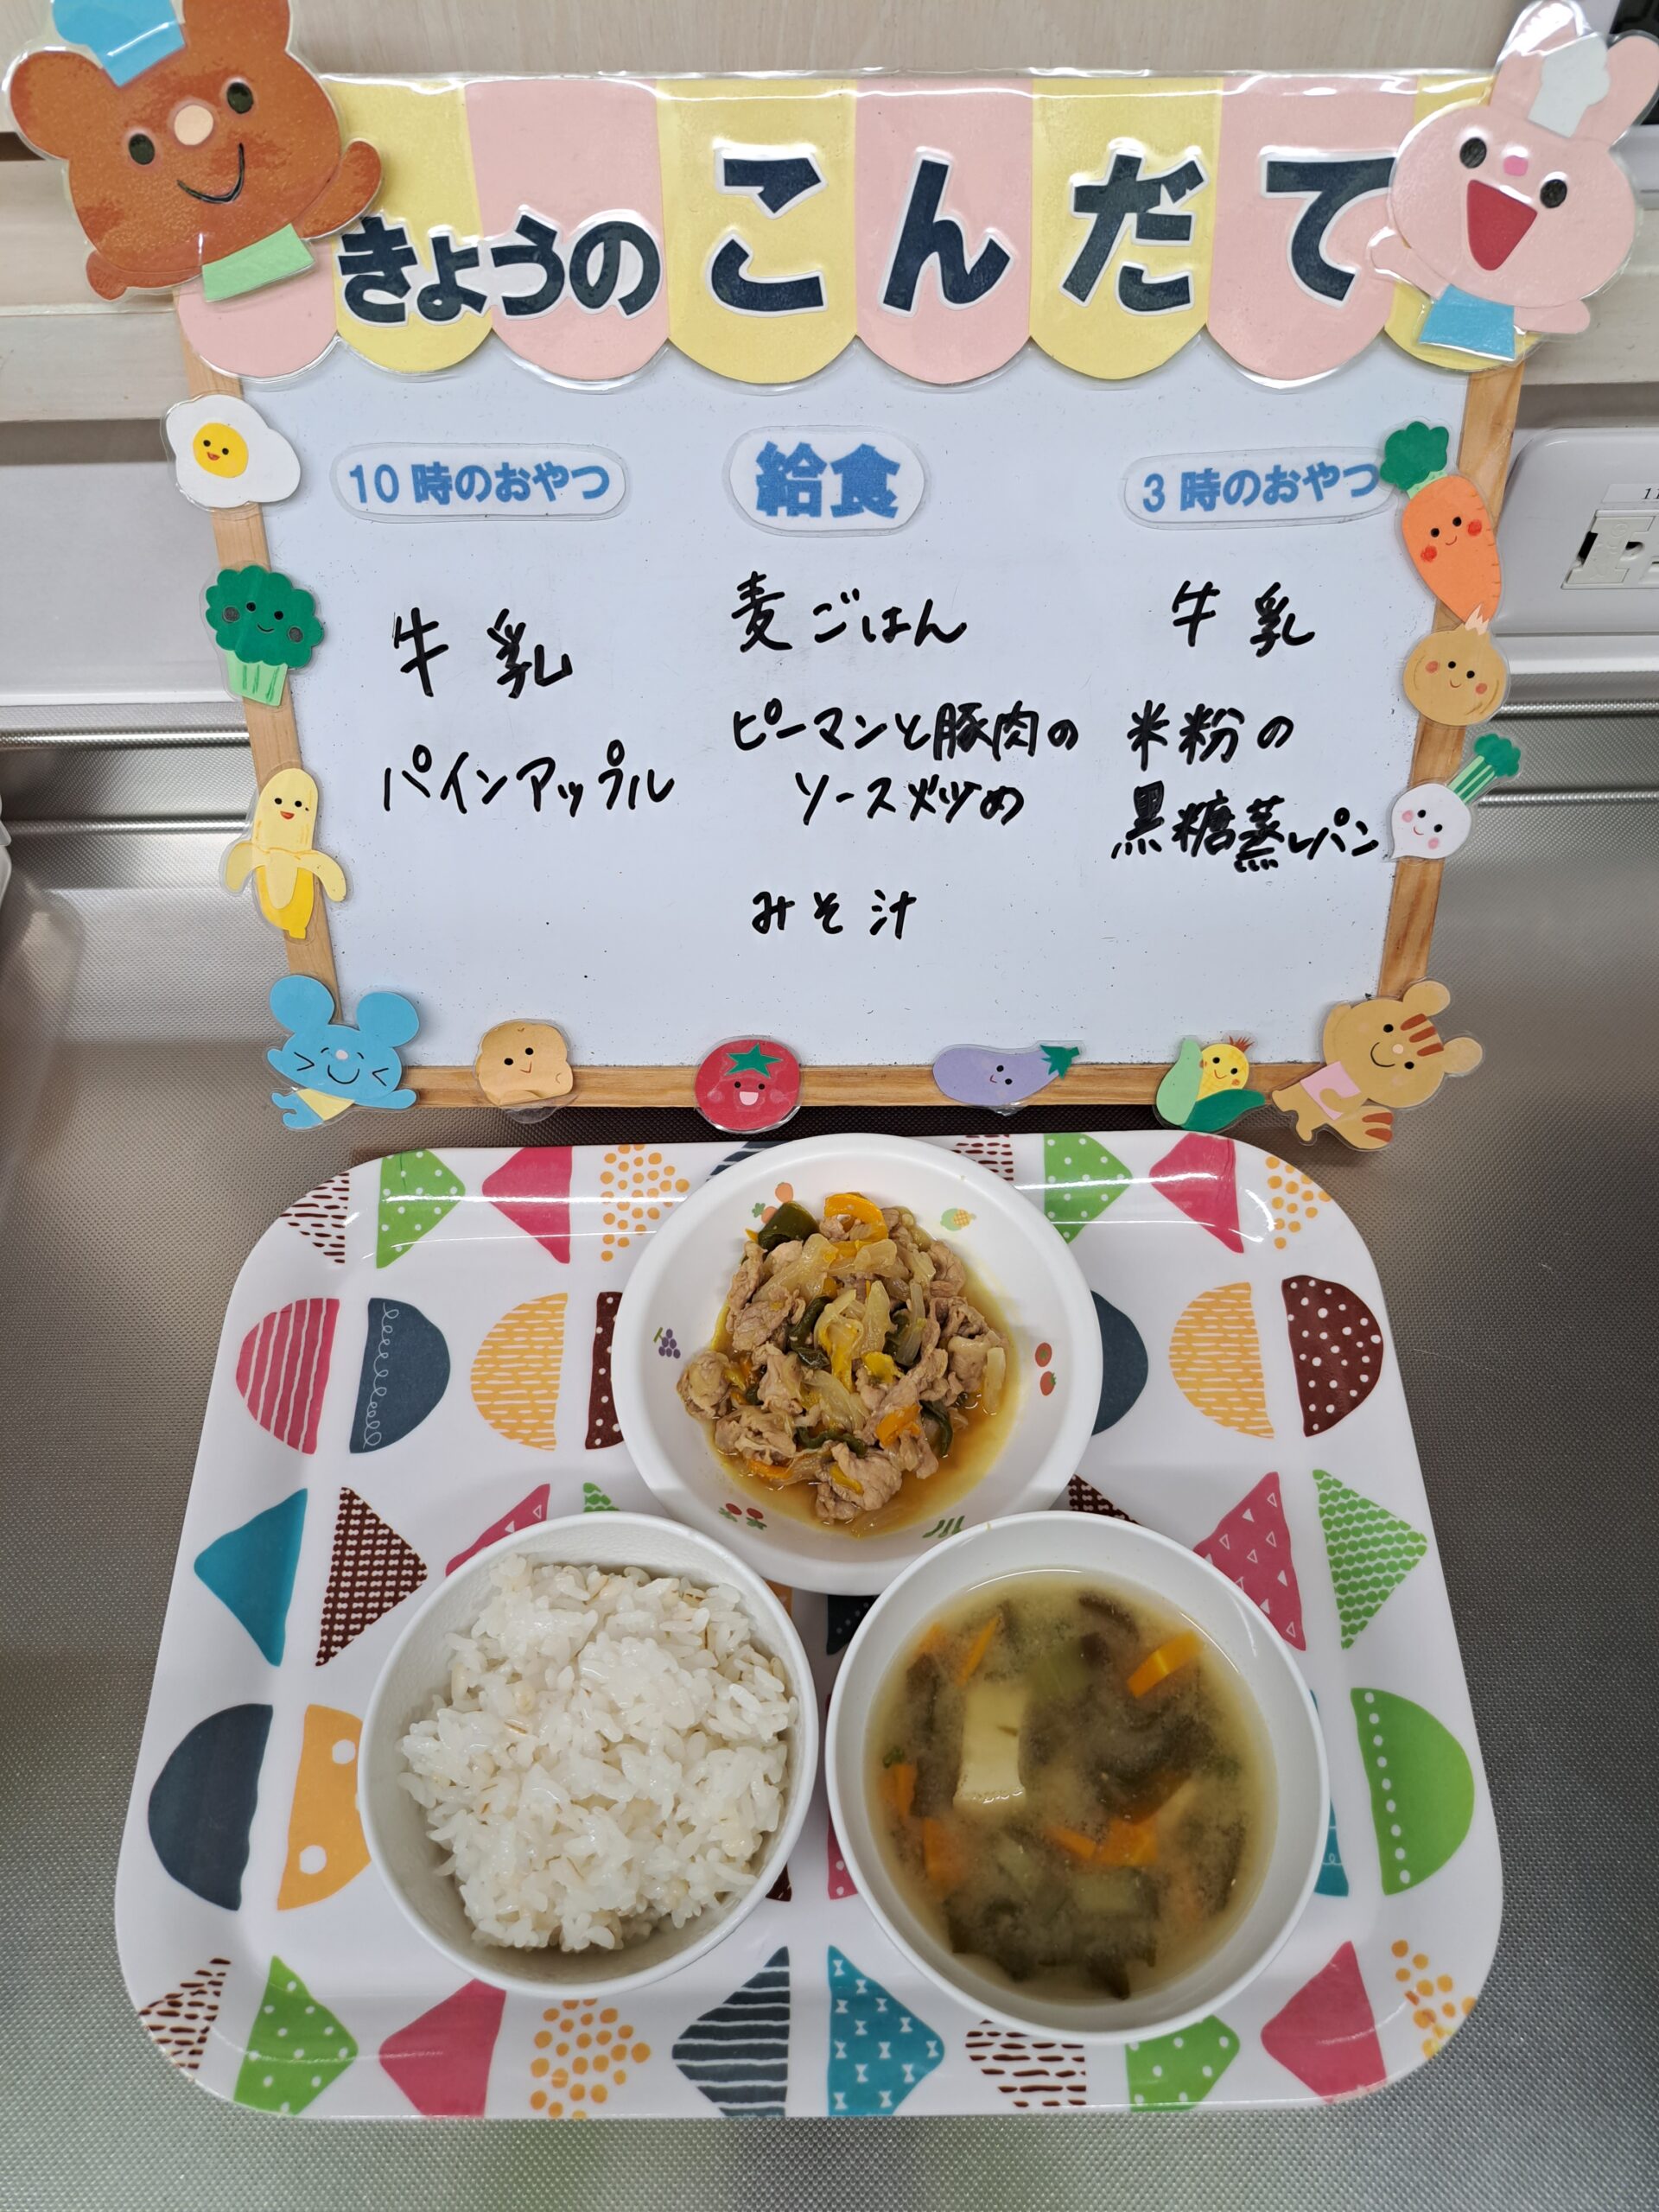 きょうの こんだて
10時のおやつ
牛乳
パインアップル
給食
麦ごはん
ピーマンと豚肉の
ソース炒め
みそ汁
3時のおやつ
牛乳
米粉の
黒糖蒸しパン